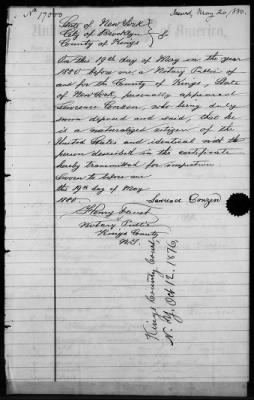 No 17000
Issued, May 20, 1880.
State of New York
City of Brooklyn
County of Kings
On this 19th day of May in the year
1880 before me, a Notary Public in
and for the County of Kings, State
of New York, personally appeared
Lawrence Conzen, who being duly
sworn deposed and said, that he
is a naturalized citizen of the
United States and identical with the
person described in the certificate
hereby transmitted for inspection
Sworn to before me
the 19th day of May
1880.
Lawrence Conzen
Henry
Notary Public
Kings County
N.Y.
Kings County Court,
N. Y. Oct 12, 1876,